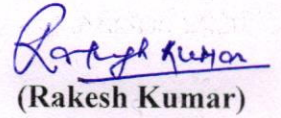 Rakesh Kumar
(Rakesh Kumar)